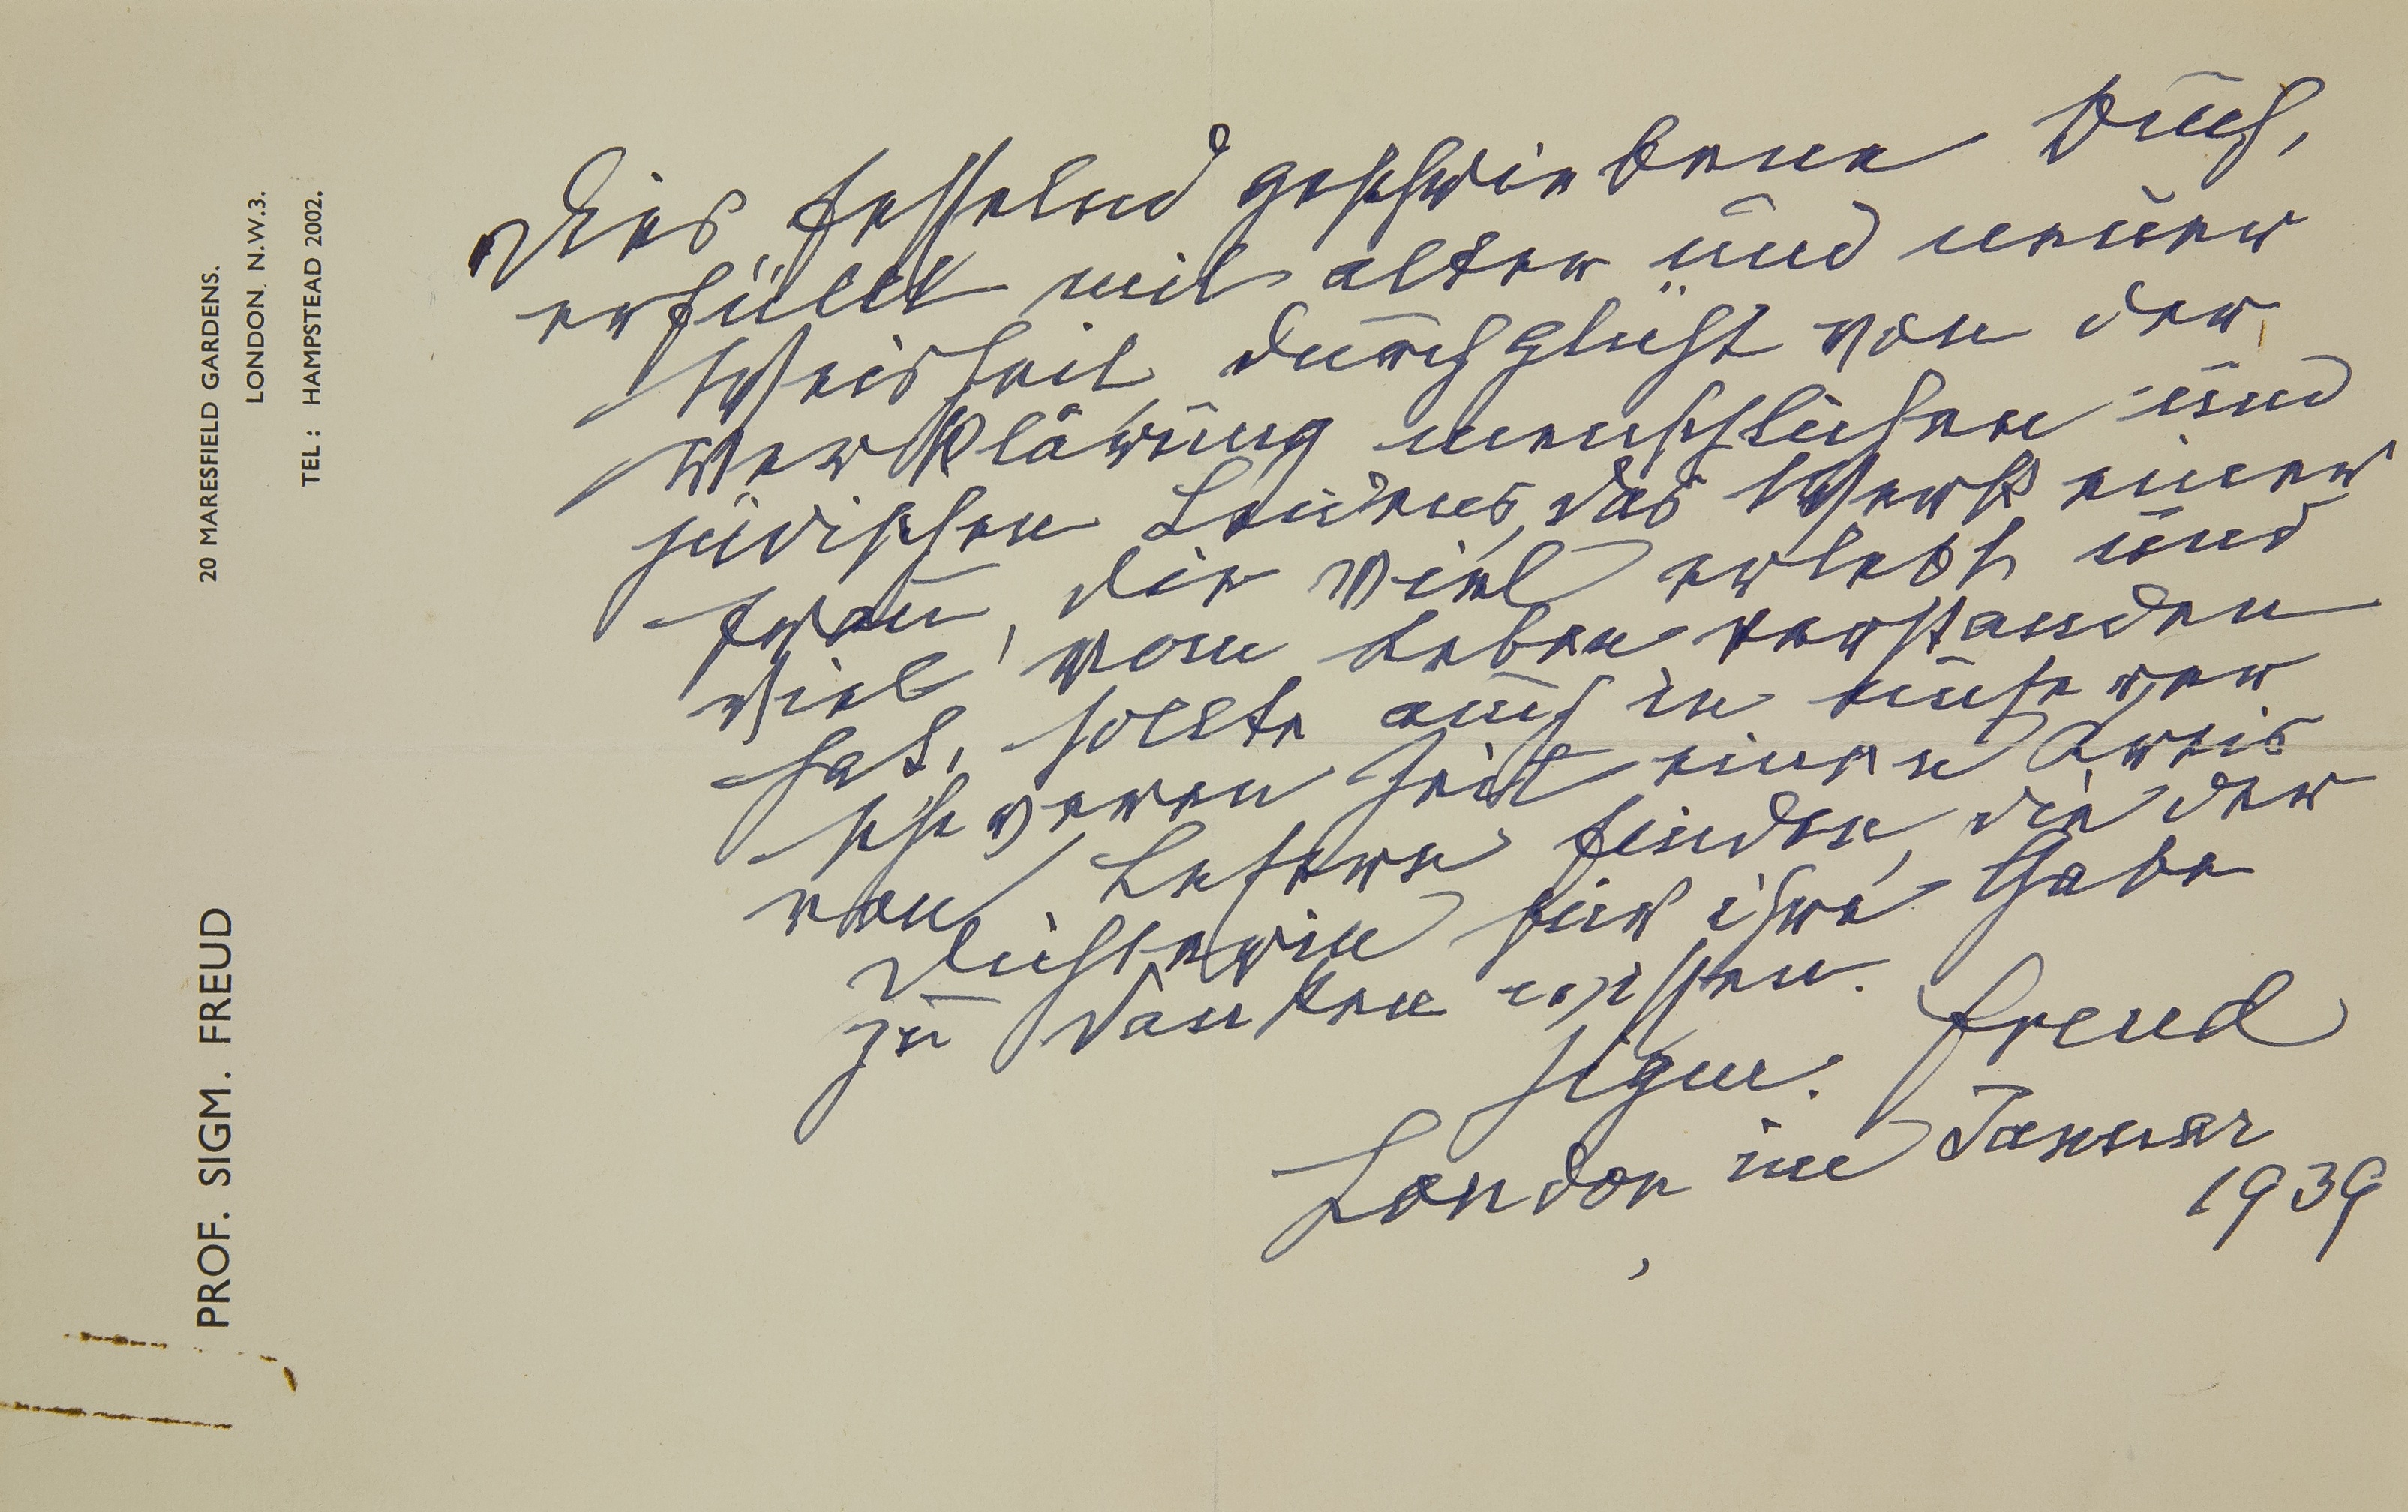 PROF. SIGM. FREUD
20 MARESFIELD GARDENS.
LONDON. N.W.3.
TEL : HAMPSTEAD 2002.
Dies fesselnd geschriebene Buch,
erfüllt mit alter und neuer
Weisheit durchglüht von der
Verklärung menschlichen und
jüdischen Leidens, das Werk einer
Frau, die viel erlebt und
viel vom Leben verstanden
hat, sollte auch in unserer
schweren Zeit einen Kreis
von Lesern finden, die der
Dichterin für ihre Gabe
zu danken wissen.
Sigm. Freud
London im Januar
1939